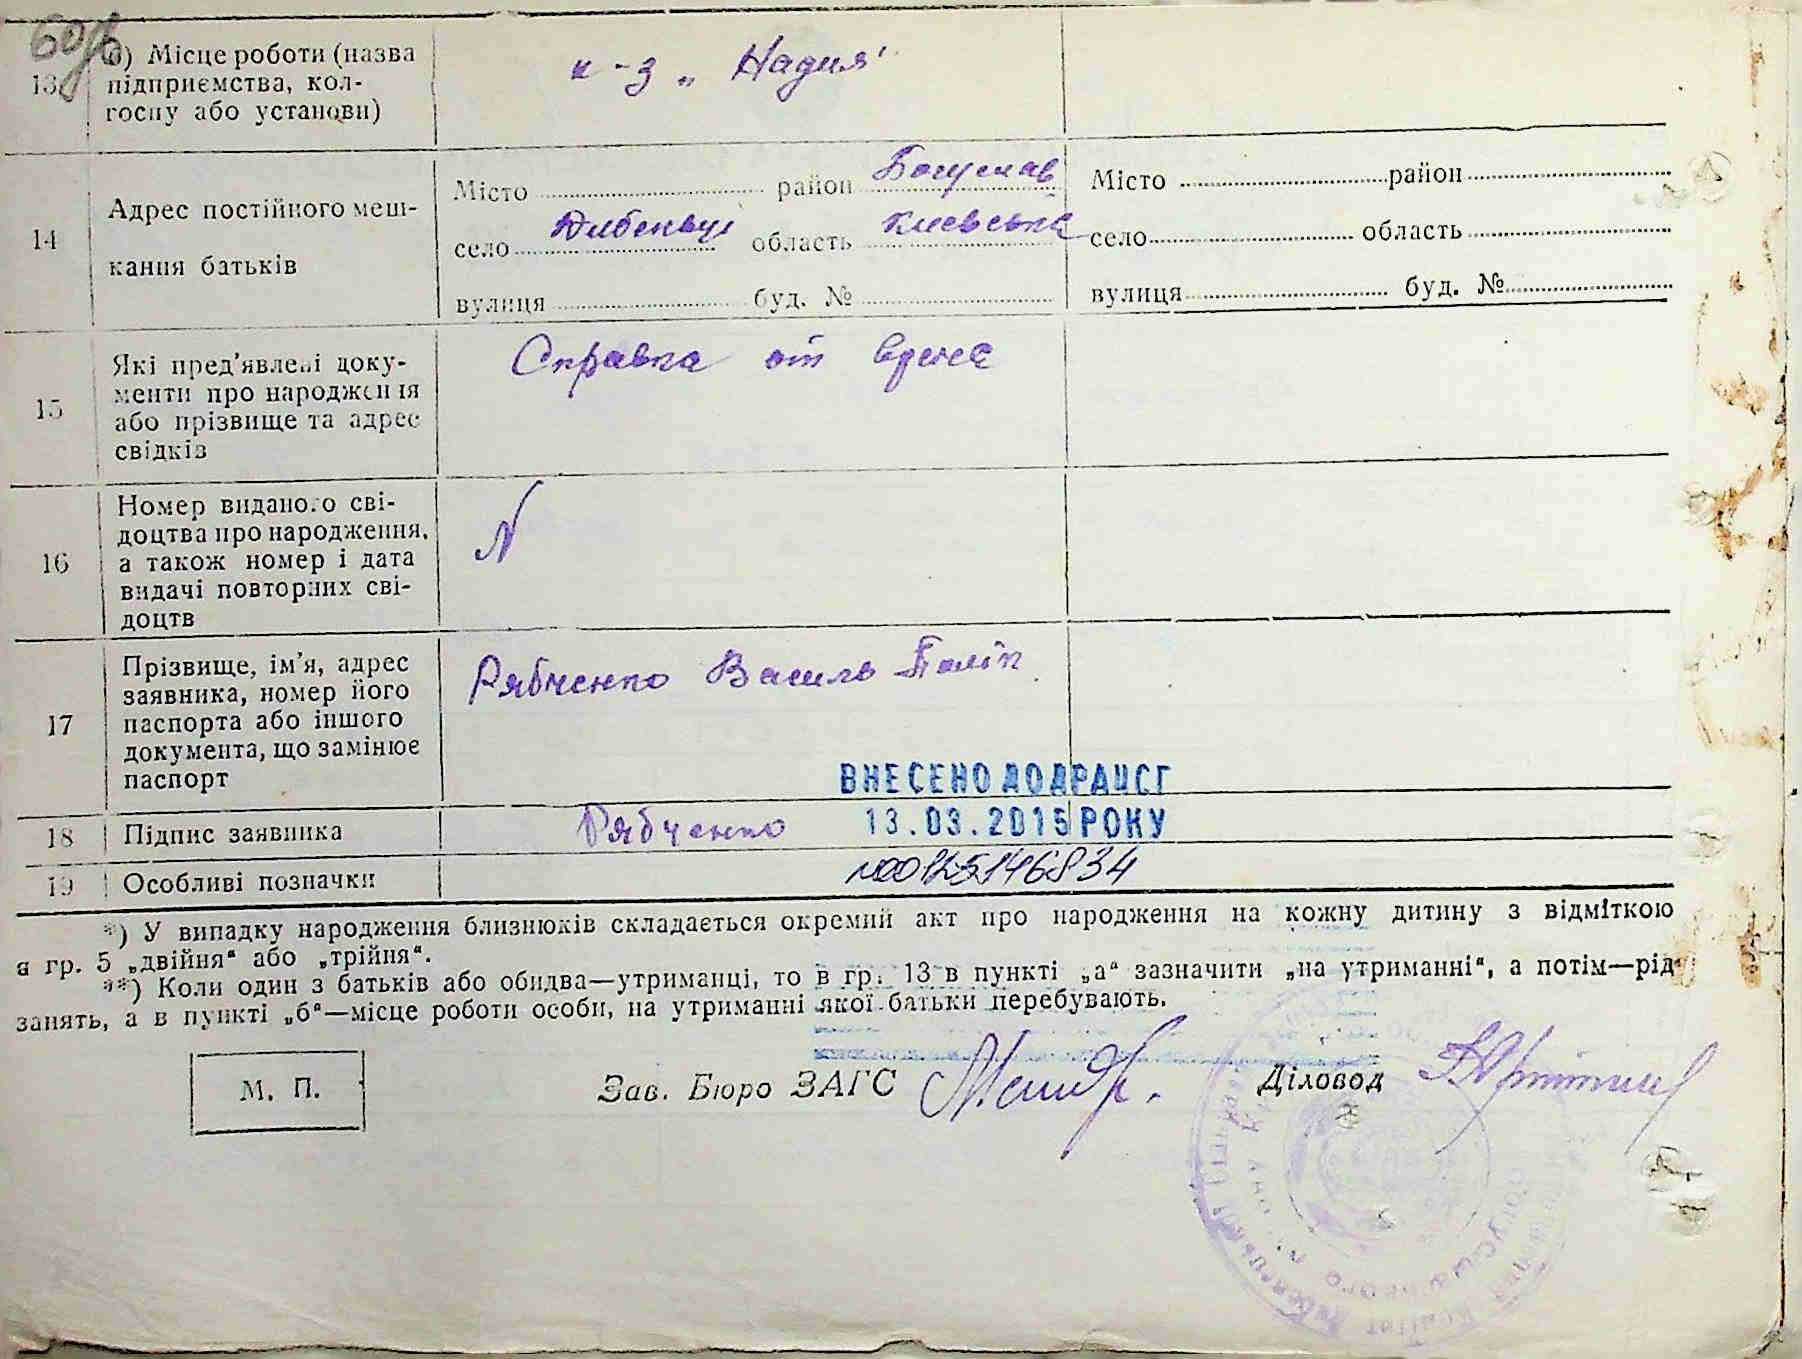 60
13 б) Місце роботи (назва
підприємства, кол-
госпу або установи)
к-з „Надия"
14 Адрес постійного меш-
кання батьків
Місто район Богуслав
село Дибенці область Киевська
вулиця буд. №
Місто район
село область
вулиця буд. №
15 Які пред'явлені доку-
менти про народження
або прізвище та адрес
свідків
Справка от врача
16 Номер виданого сві-
доцтва про народження,
а також номер і дата
видачі повторних сві-
доцтв
N
17 Прізвище, ім'я, адрес
заявника, номер його
паспорта або іншого
документа, що замінює
паспорт
Рябченко Василь
ВНЕСЕНО ДО ДРАЦСГ
18 Підпис заявника Рябченко 13.03.2015 РОКУ
19 Особливі позначки №00125146834
*) У випадку народження близнюків складається окремий акт про народження на кожну дитину з відміткою
в гр. 5 „двійня“ або „трійня“.
**) Коли один з батьків або обидва—утриманці, то в гр. 13 в пункті „а“ зазначити „на утриманні“, а потім—рід
занять, а в пункті „б“—місце роботи особи, на утриманні якої батьки перебувають.
М. П.
Зав. Бюро ЗАГС
Діловод